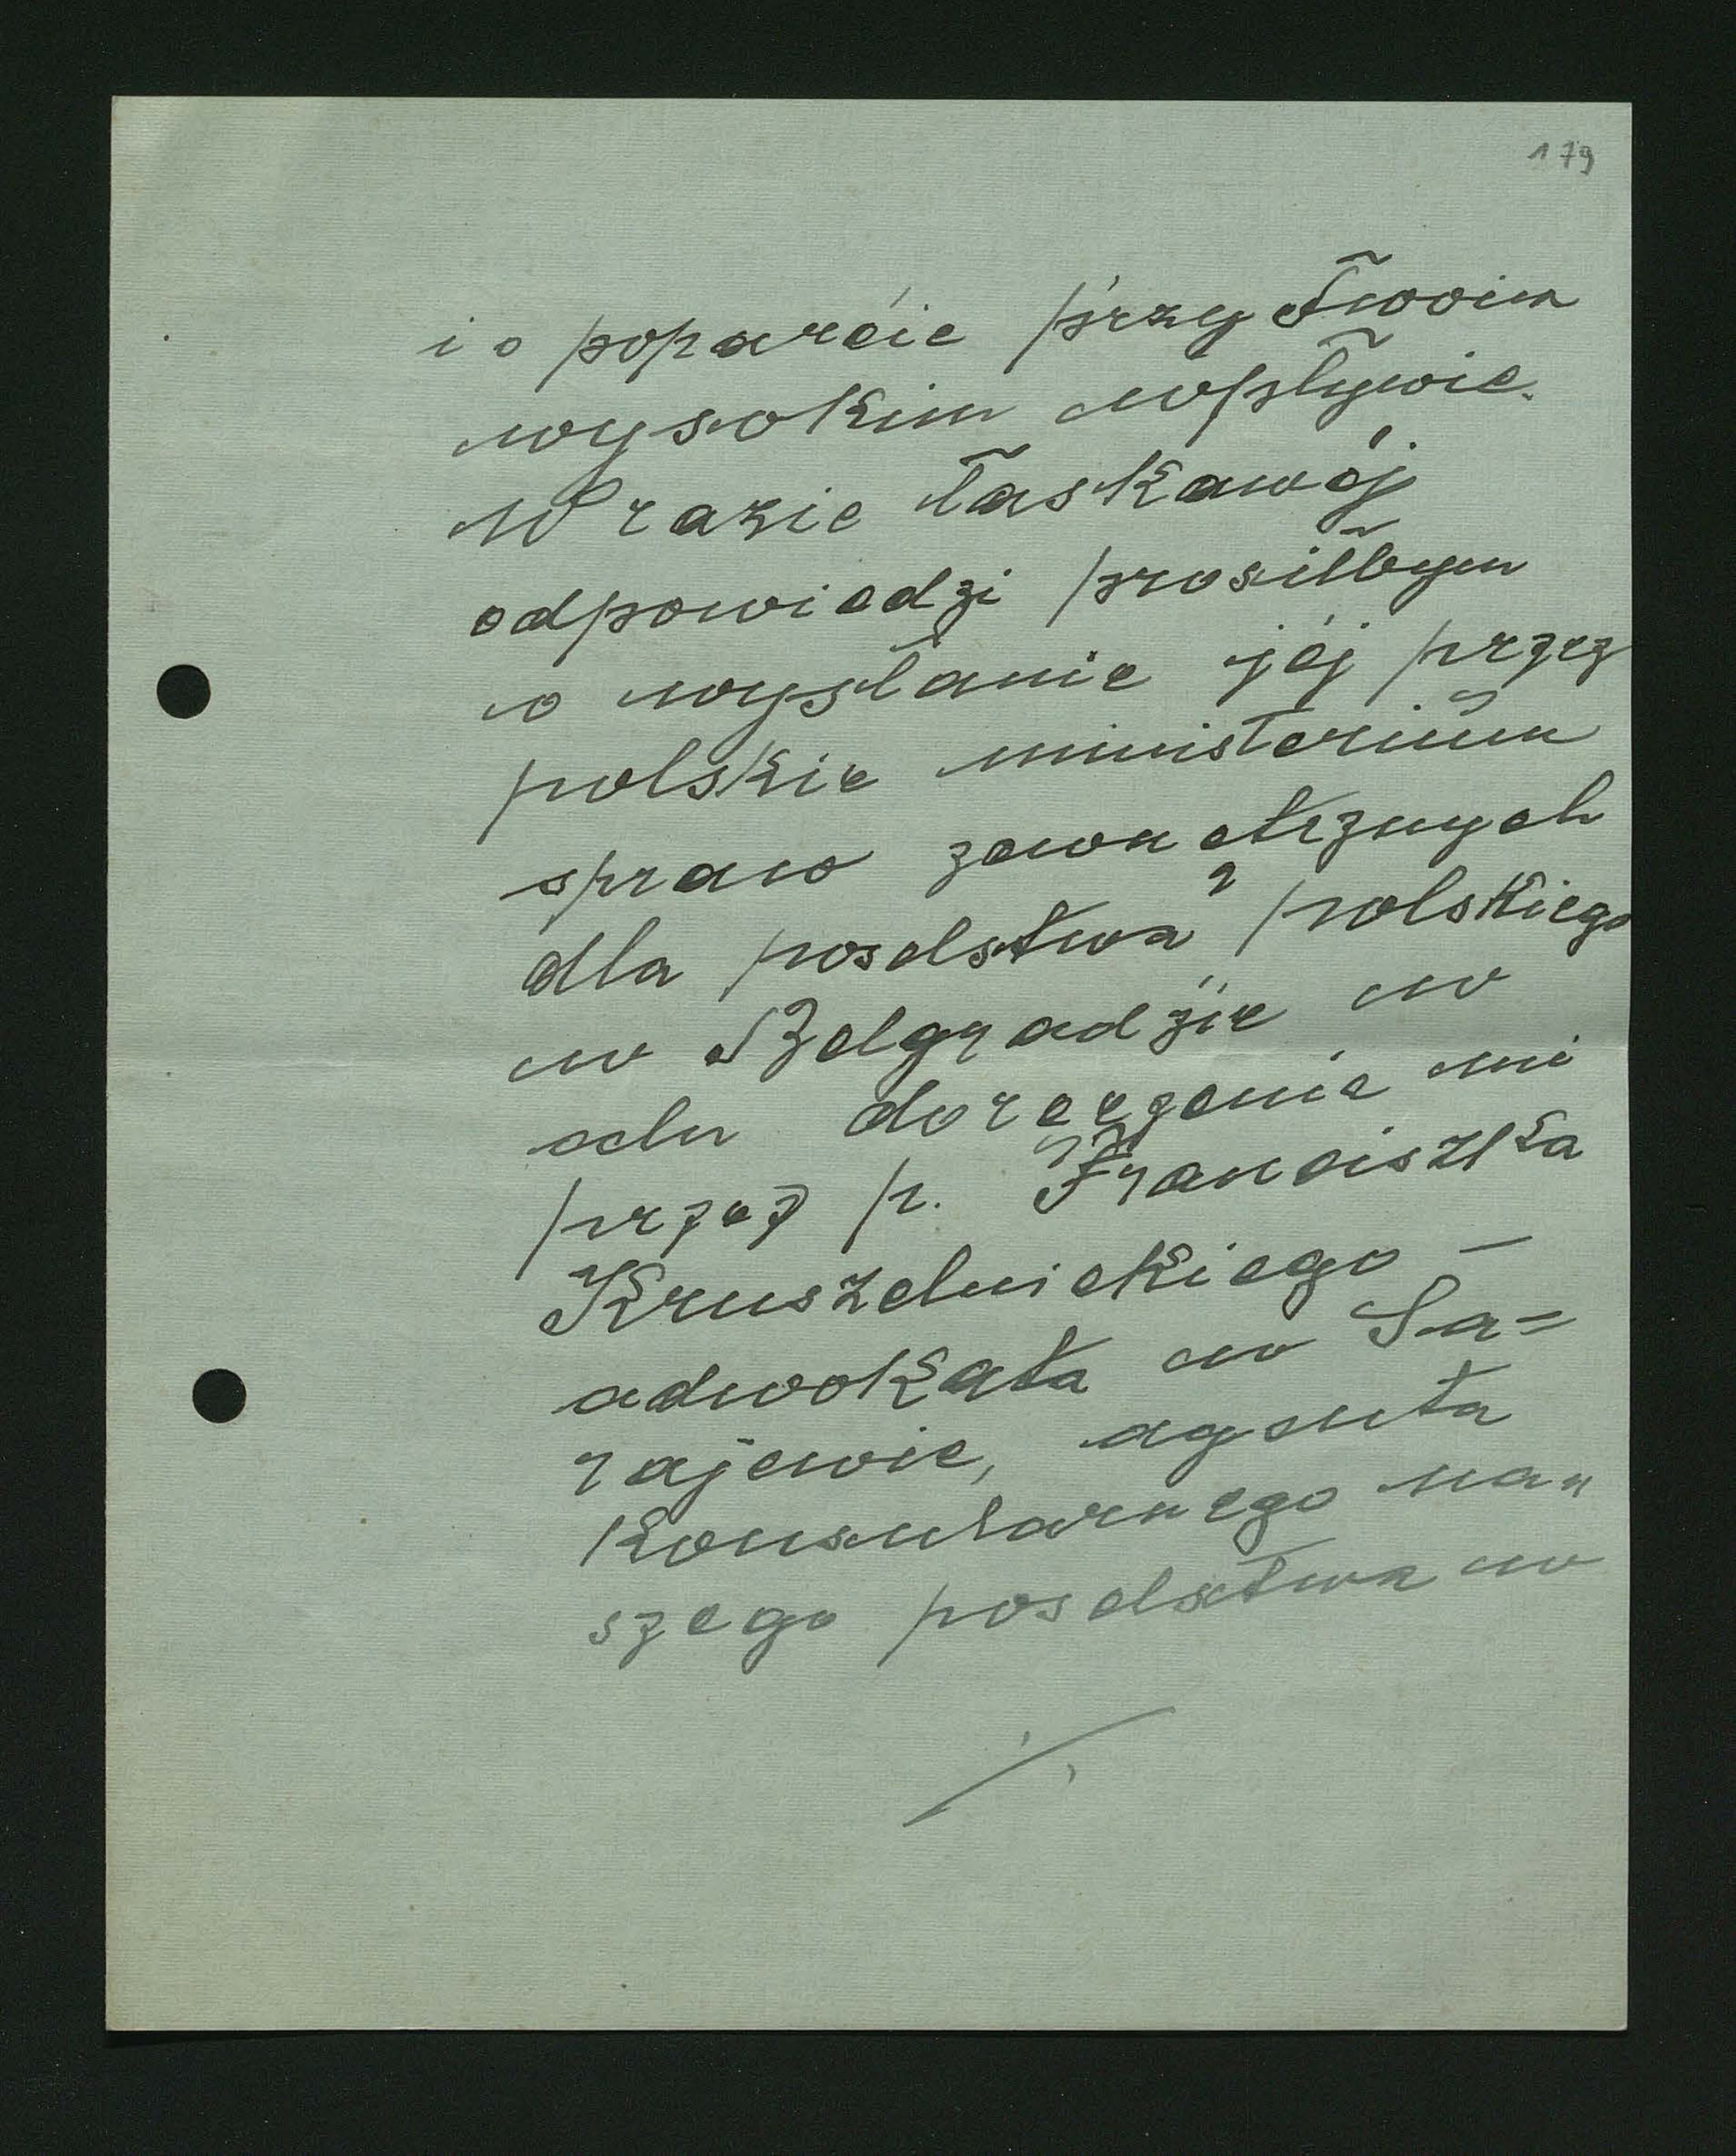 179
i o poparcie przy Twoim
wysokim wpływie.
W razie łaskawéj
odpowiedzi prosiłbym
o wysłanie jéj przez
polskie ministerium
spraw zewnętrznych
dla poselstwa polskiego
w Belgradzie w
celu doręczenia mi
przez p. Franciszka
Kruszelnickiego –
adwokata w Sa=
rajewie, agenta
konsularnego na„
szego poselstwa w
./.